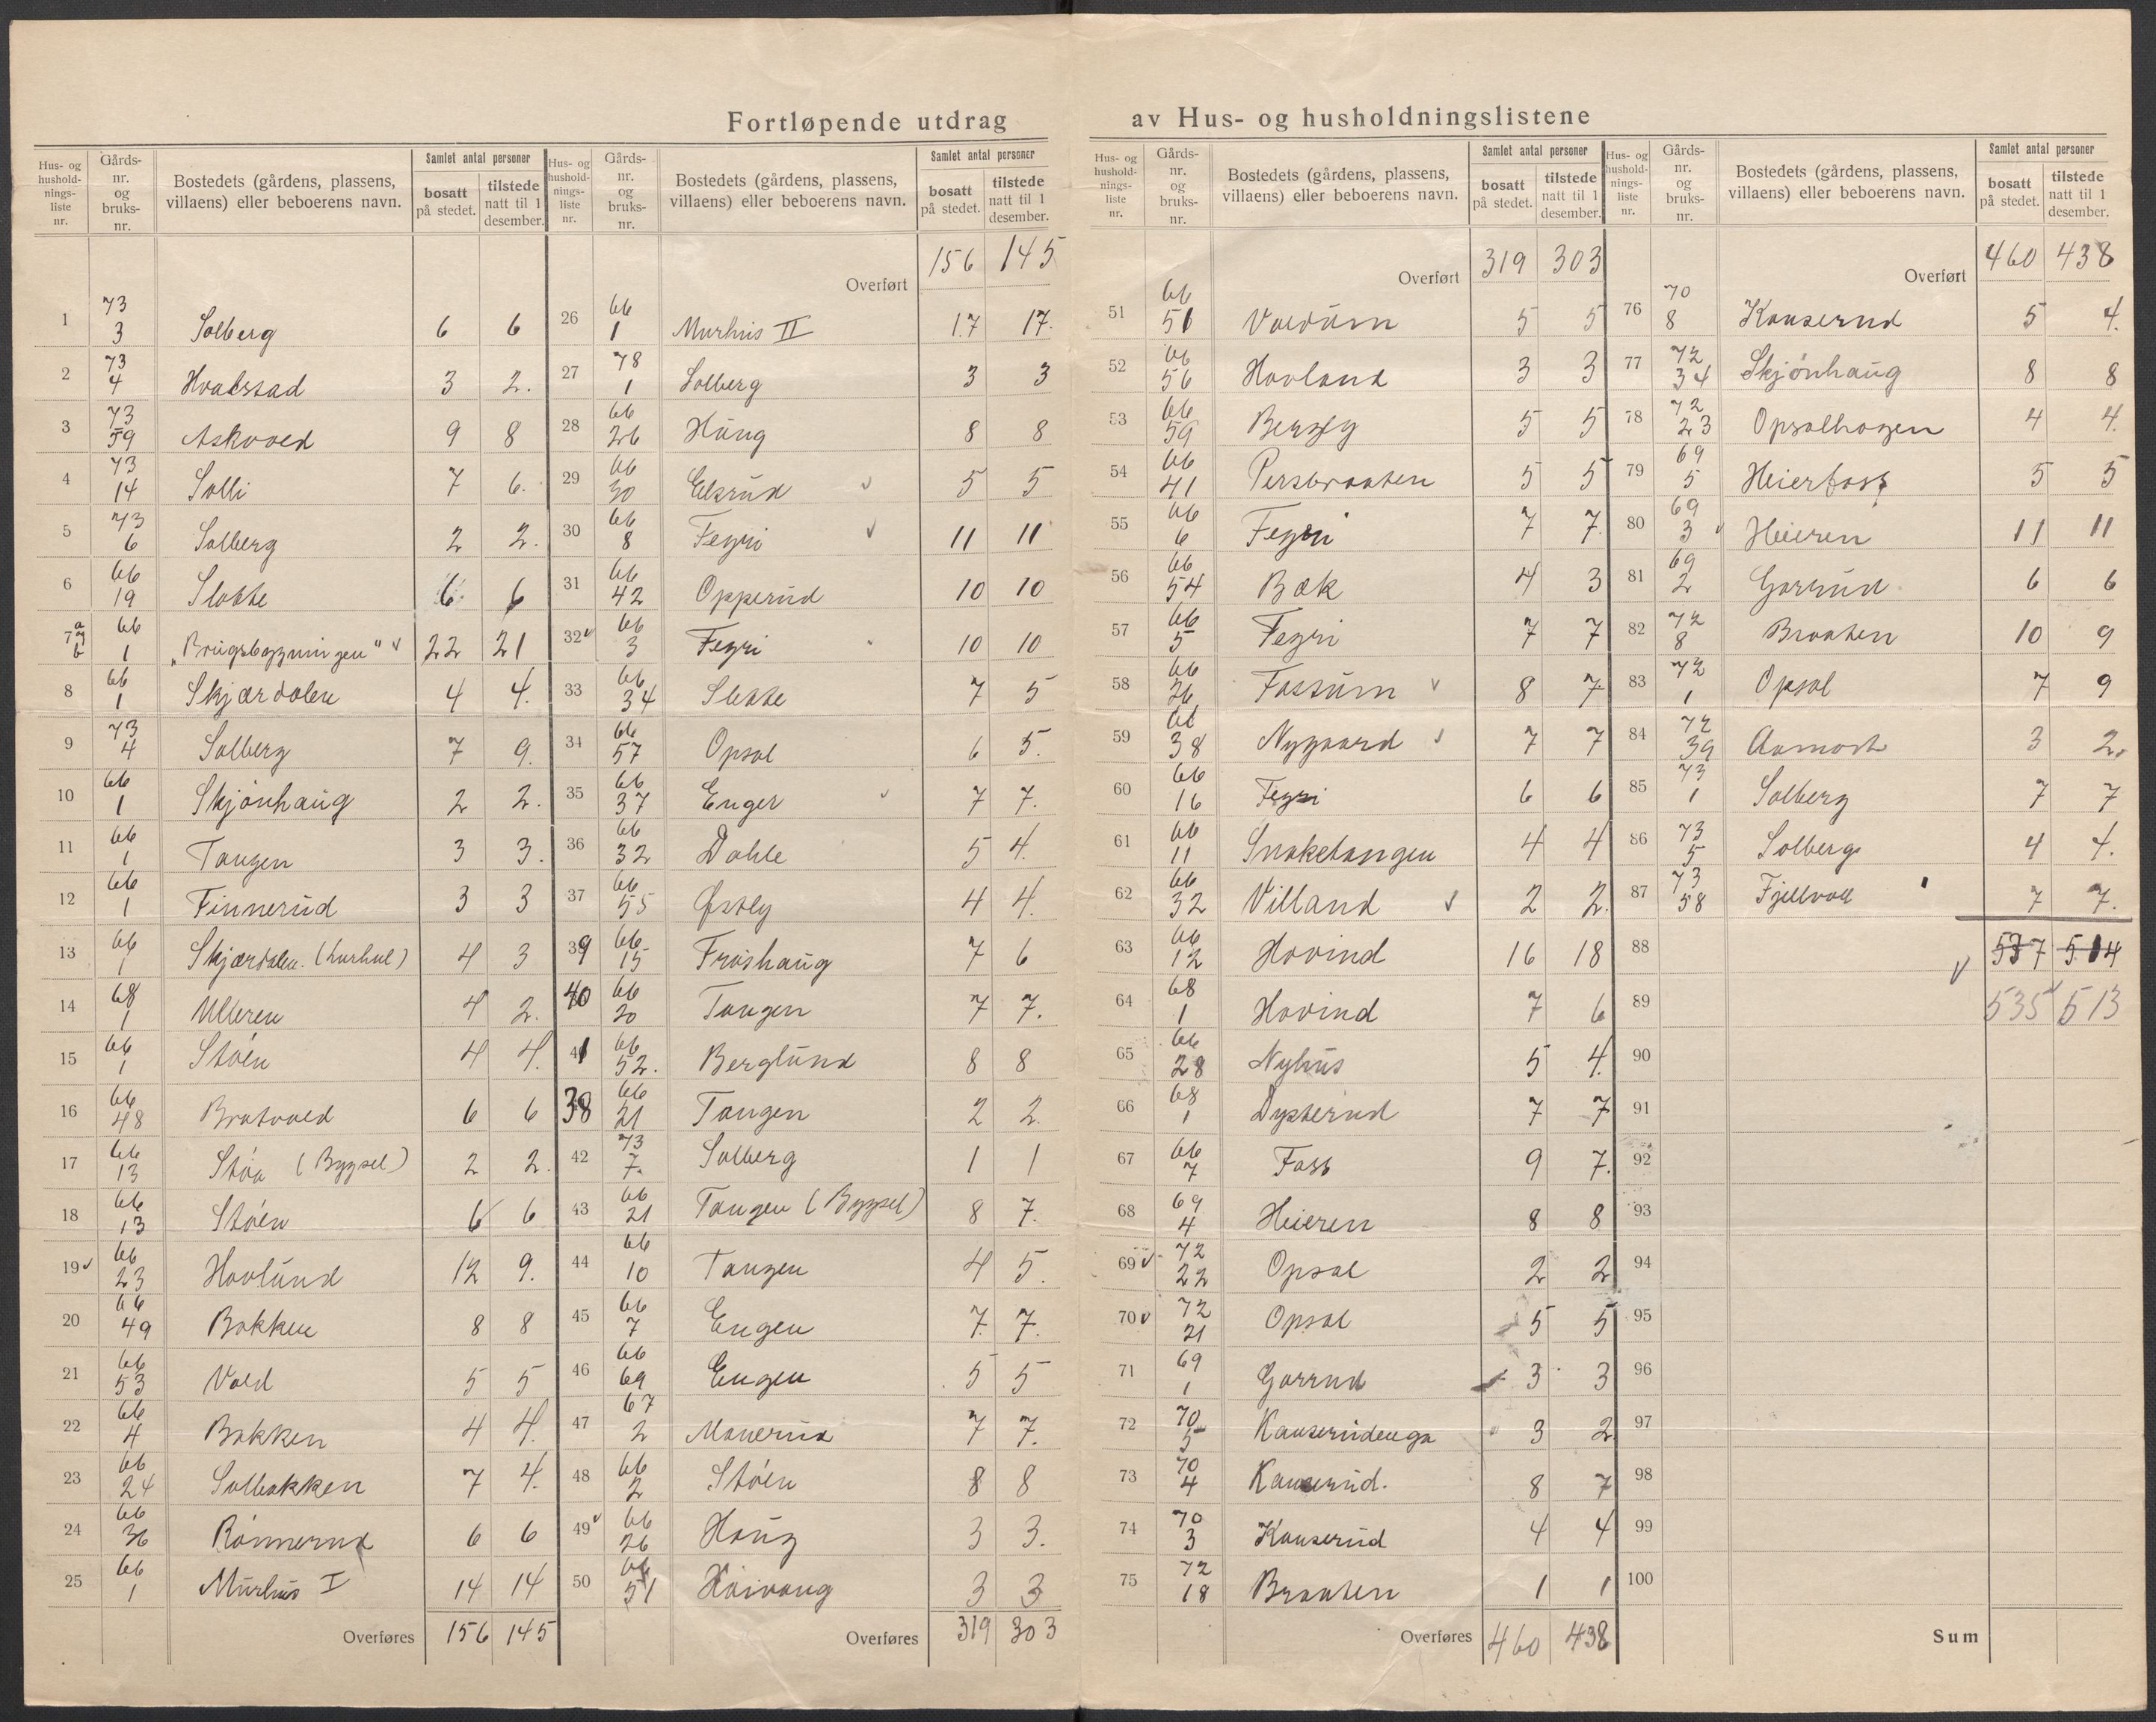 Fortløpende utdrag av Hus- og husholdningslistene
Hus- og husholdnings-liste nr. Gårds-nr. og bruks-nr. Bostedets (gårdens, plassens, villaens) eller beboerens navn. Samlet antal personer bosatt på stedet. tilstede natt til 1 desember.
1 73 3 Solberg 6 6
2 73 4 Hvalstad 3 2.
3 73 59 Askvold 9 8
4 73 14 Solli 7 6.
5 73 6 Solberg 2 2.
6 66 19 Slokke 6. 6
7 a b 66 1 „Brugsbygningen" 22 21
8 66 1 Skjærdalen 4 4.
9 73 4 Solberg 7 9.
10 66 1 Skjönhaug 2 2.
11 66 1 Tangen 3 3.
12 66 1 Finnerud 3 3
13 66 1 Skjærdalen. 4 3
14 68 1 Ulleren 4 2.
15 66 1 Støen 4 4.
16 66 48 Bratvold 6 6
17 66 13 Støa (Bygsel) 2 2.
18 66 13 Støen 6 6
19 66 23 Hovlund 12 9.
20 66 49 Bakken 8 8
21 66 53 Vold 5 5
22 66 4 Bakken 4 4.
23 66 24 Solbakken 7 4.
24 66 36 Rönnerud 6 6
25 66 1 Murhus I 14 14
Overføres 156 145
Hus- og husholdnings-liste nr. Gårds-nr. og bruks-nr. Bostedets (gårdens, plassens, villaens) eller beboerens navn. Samlet antal personer bosatt på stedet. tilstede natt til 1 desember.
Overført 156 145
26 66 1 Murhus II 17 17.
27 78 1 Solberg 3 3
28 66 26 Haug 8 8
29 66 30 Elsrud 5 5
30 66 8 Fegri 11 11
31 66 42 Opperud 10 10
32 66 3 Fegri 10 10
33 66 34 Slokke 7 5
34 66 57 Opsal 6 5.
35 66 37 Enger 7 7.
36 66 32 Dahle 5 4.
37 66 55 Østby 4 4.
39 66 15 Fröshaug 7 6
40 66 20 Tangen 7 7.
41 66 52. Berglund 8 8
38 66 21 Tangen 2 2.
42 73 7. Solberg 1 1
43 66 21 Tangen (Bygsel) 8 7.
44 66 10 Tangen 4 5.
45 66 7 Engen 7. 7.
46 66 69 Engen 5 5
47 67 2 Monerud 7 7.
48 66 2 Støen 8 8
49 66 26 Haug 3 3.
50 66 51 Høivang 3 3
Overføres 319 303
Hus- og husholdnings-liste nr. Gårds-nr. og bruks-nr. Bostedets (gårdens, plassens, villaens) eller beboerens navn. Samlet antal personer bosatt på stedet. tilstede natt til 1 desember.
Overført 319 303
51 66 50 Voldum 5 5
52 66 56 Hovland 3 3
53 66 59 Bergly 5 5
54 66 41 Persbraaten 5 5
55 66 6 Fegri 7 7.
56 66 54 Bæk 4 3
57 66 5 Fegri 7 7
58 66 26 Fossum 8 7
59 66 38 Nygaard 7 7
60 66 16 Fegri 6 6
61 66 11 Snaketangen 4 4
62 66 32 Villand 2 2.
63 66 12 Hovind 16 18
64 68 1 Hovind 7 6
65 66 28 Nyhus 5 4.
66 68 1 Dysterud 7 7
67 66 7 Foss 9 7.
68 69 4 Heieren 8 8
69 72 22 Opsal 2 2
70 72 21 Opsal 5 5
71 69 1 Garrud 3 3
72 70 5 Kauserudenga 3 2
73 70 4 Kauserud. 8 7
74 70 3 Kauserud 4 4
75 72 18 Braaten 1 1
Overføres 460 438
Hus- og husholdnings-liste nr. Gårds-nr. og bruks-nr. Bostedets (gårdens, plassens, villaens) eller beboerens navn. Samlet antal personer bosatt på stedet. tilstede natt til 1 desember.
Overført 460 438
76 70 8 Kauserud 5 4.
77 72 34 Skjönhaug 8 8
78 72 23 Opsalhagen 4 4.
79 69 5 Heierfoss 5 5
80 69 3 Heieren 11 11
81 69 2 Garrud 6 6
82 72 8 Braaten 10 9
83 72 1 Opsal 7 9
84 72 39 Aamodt 3 2.
85 73 1 Solberg 7 7
86 73 5 Solberg 4 4.
87 73 58 Fjellvoll 7 7.
88 537 514
89 535 513
90
91
92
93
94
95
96
97
98
99
100
Sum